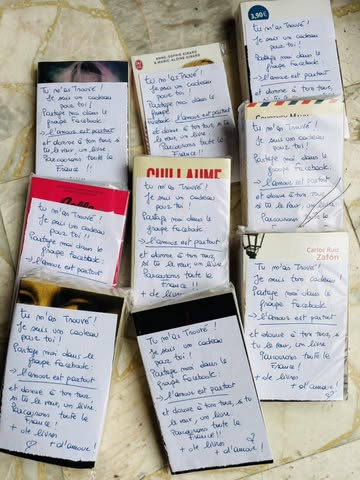 Tu m'as Trouvé !
Je suis un cadeau
pour toi !
Partage moi dans le
groupe Facebook :
→ l'amour est partout
et donne à ton tour,
si tu le veux, un livre
Parcourons toute la
France !!
ANNE-SOPHIE GIRARD
& MARIE-ALDINE GIRARD
Tu m'as Trouvé !
Je suis un cadeau
pour toi !
Partage moi dans le
groupe Facebook :
→ l'amour est partout
et donne à ton tour,
si tu le veux, un livre
Parcourons toute la
France !!
3,90€
Tu m'as Trouvé !
Je suis un cadeau
pour toi !
Partage moi dans le
groupe Facebook :
→ l'amour est partout
et donne à ton tour,
si tu le veux, un livre
Tu m'as Trouvé !
Je suis un cadeau
pour toi !
Partage moi dans le
groupe Facebook :
→ l'amour est partout
GUILLAUME
Tu m'as Trouvé !
Je suis un cadeau
pour toi !
Partage moi dans le
groupe Facebook :
→ l'amour est partout
et donne à ton tour,
si tu le veux, un livre
Parcourons toute la
France !!
+ de livres
Tu m'as Trouvé !
Je suis un cadeau
pour toi !
Partage moi dans le
groupe Facebook :
→ l'amour est partout
et donne à ton tour,
si tu le veux, un livre
Tu m'as Trouvé !
Je suis un cadeau
pour toi !
Partage moi dans le
groupe Facebook :
→ l'amour est partout
et donne à ton tour, si
tu le veux, un livre
Parcourons toute la
France !
+ de livres
+ d'amour !
Tu m'as Trouvé !
Je suis un cadeau
pour toi !
Partage moi dans le
groupe Facebook :
→ l'amour est partout
et donne à ton tour, si tu
le veux, un livre
Parcourons toute la
France !!
+ de livres
+ d'amour !
Carlos Ruiz
Zafón
Tu m'as Trouvé !
Je suis un cadeau
pour toi !
Partage moi dans le
groupe Facebook :
→ l'amour est partout
et donne à ton tour,
si tu le veux, un livre
Parcourons toute la
France !
+ de livres
+ d'amour !